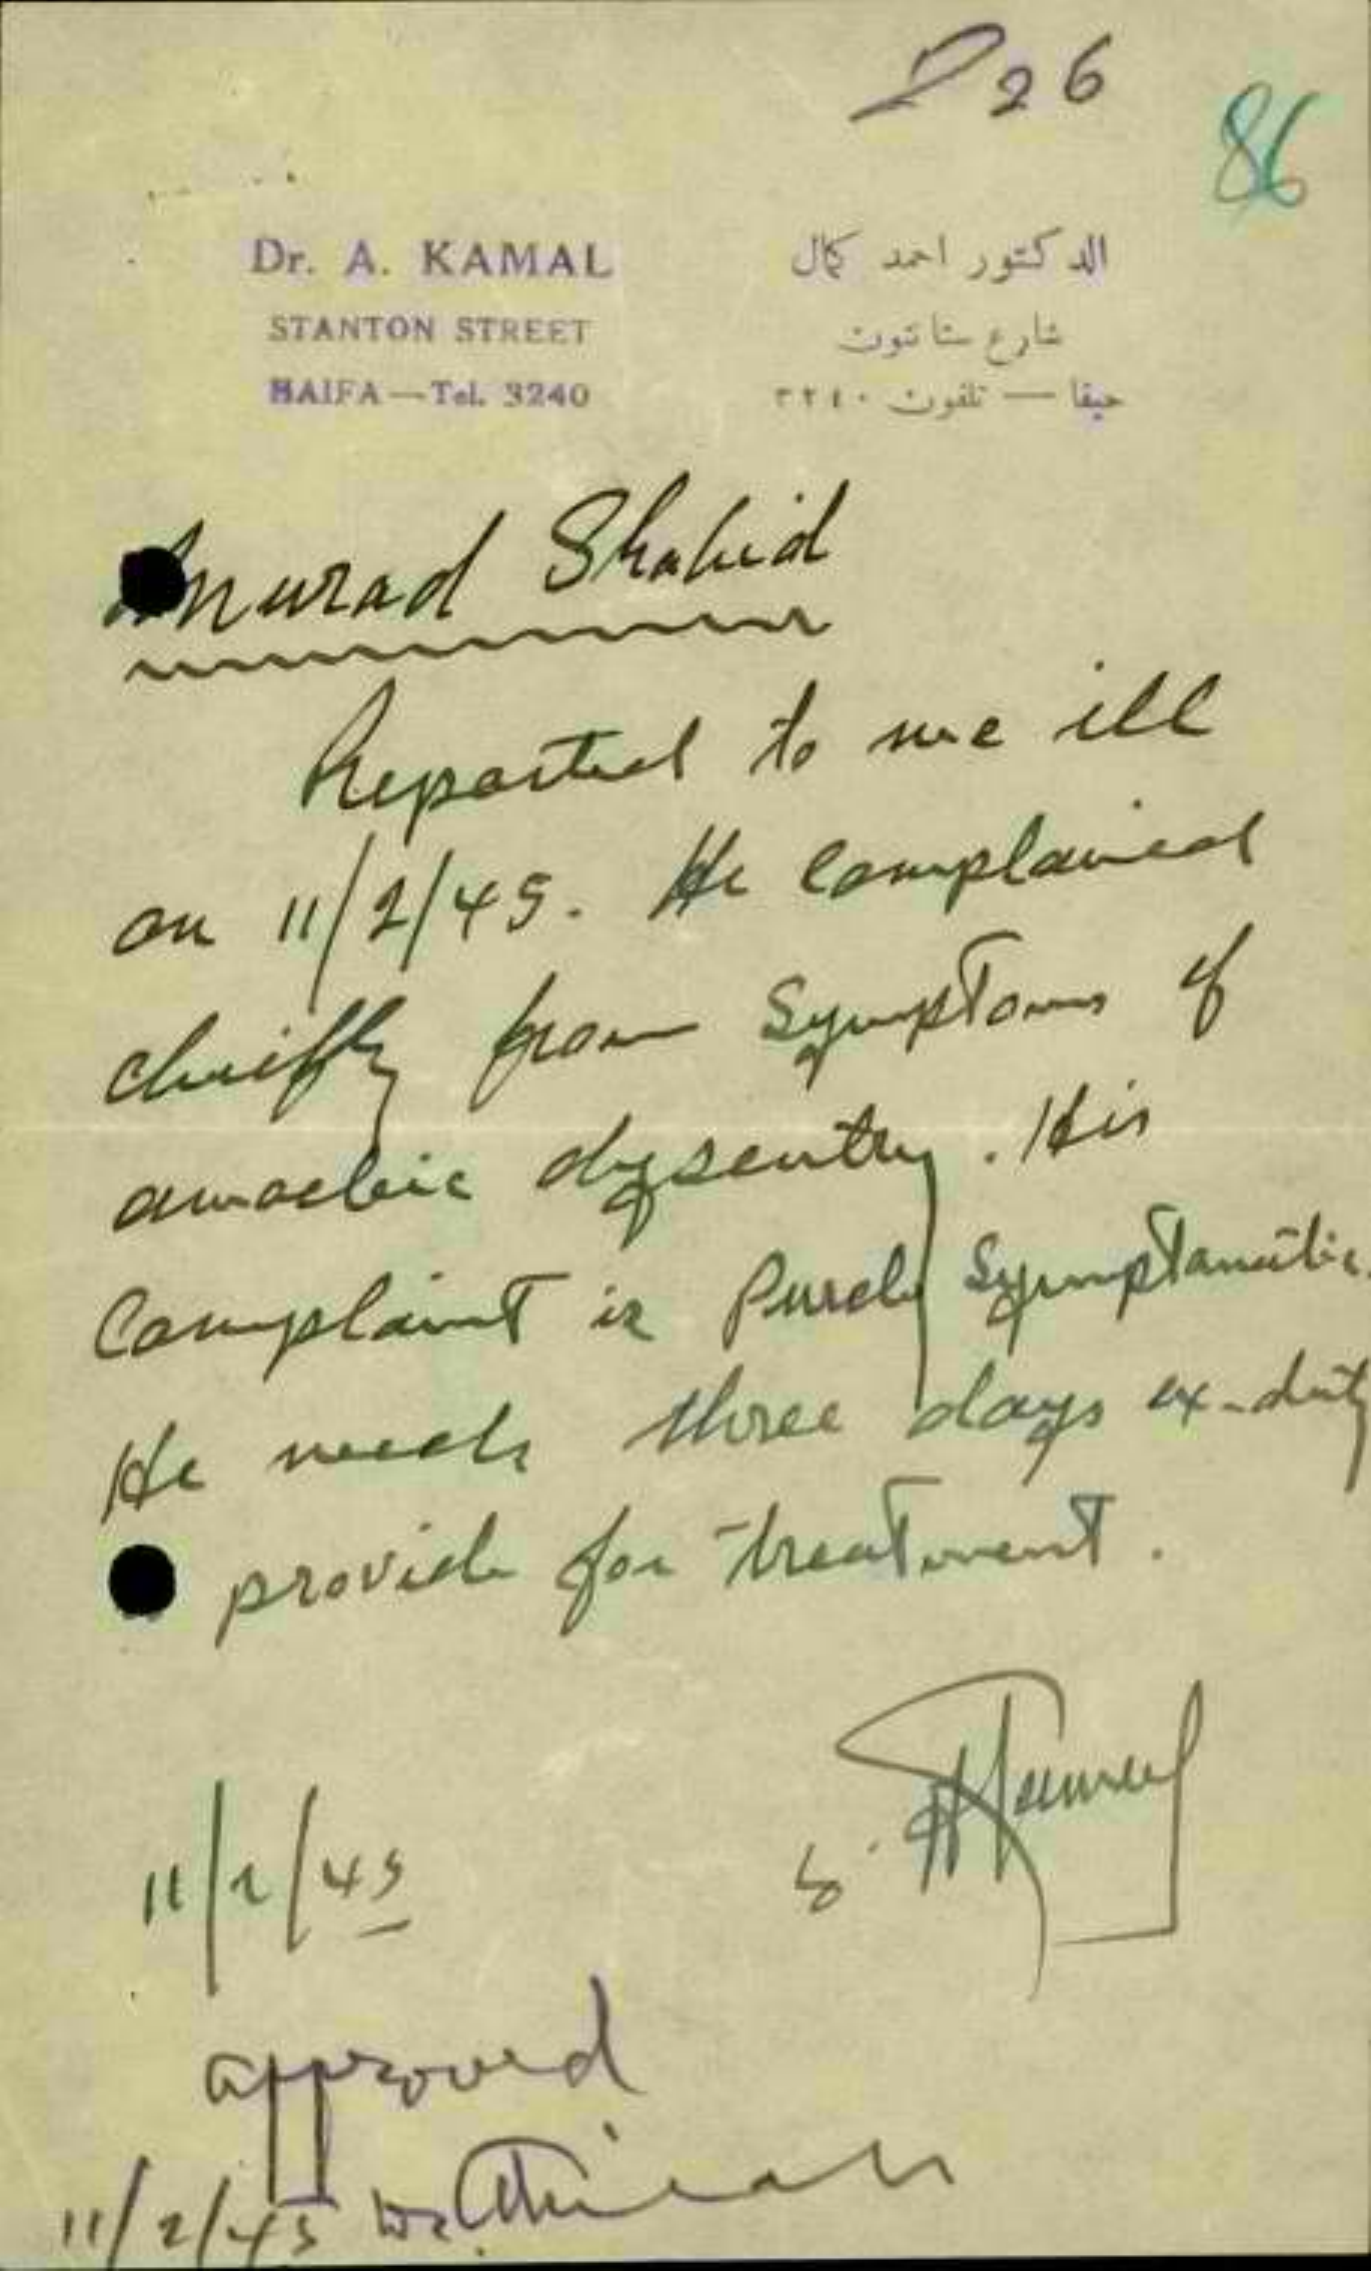 D 26
86
Dr. A. KAMAL
STANTON STREET
HAIFA — Tel. 3240
الدكتور احمد كمال
شارع ستانتون
حيفا — تلفون ٣٢٤٠
murad Shahid
Reported to me ill
on 11/2/45. He complained
chiefly from symptoms of
amoebic dysentry. His
Complaint is Purely Symptomatic.
He needs three days ex-duty
provide for treatment.
11/2/45
approved
11/2/45 Dr.